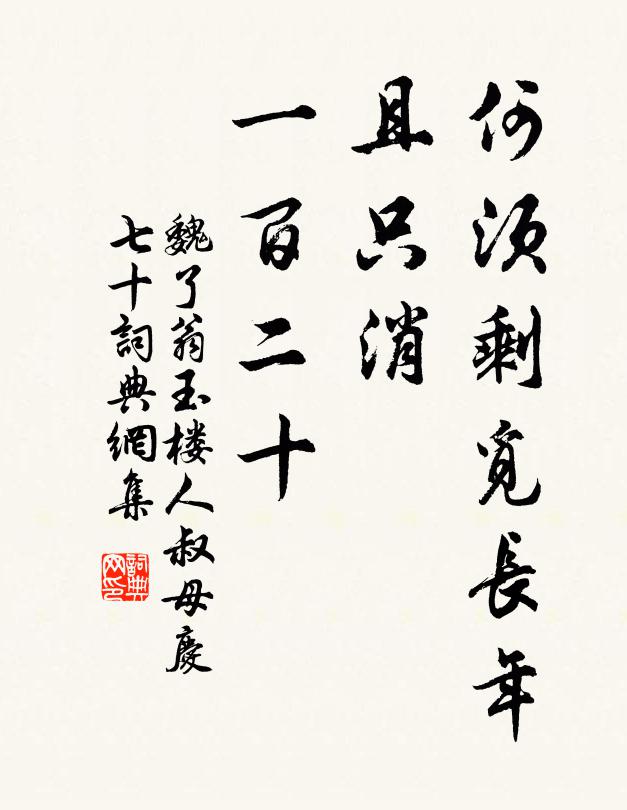 何須剩覓長年
且只消
一百二十
魏了翁玉楼人叔母慶
七十詞典網集
詞典網印